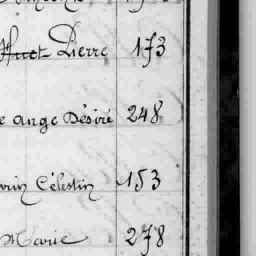 Huet Pierre 173
e ange Désiré 248
vrin Célestin 153
Marie 278